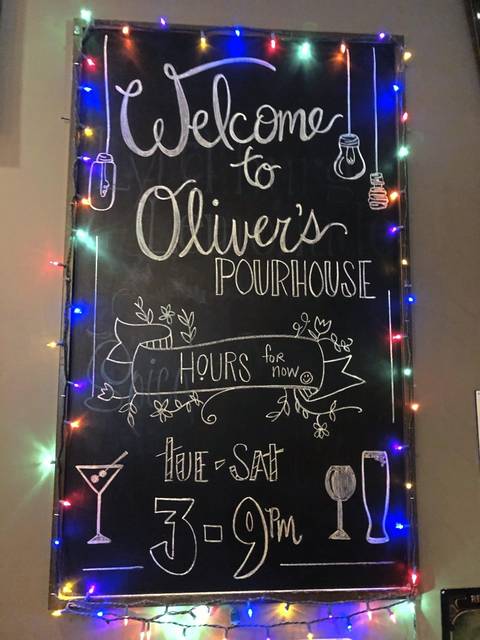 Welcome
to
Oliver's
POURHOUSE
HOURS for now
TUE-SAT
3-9pm